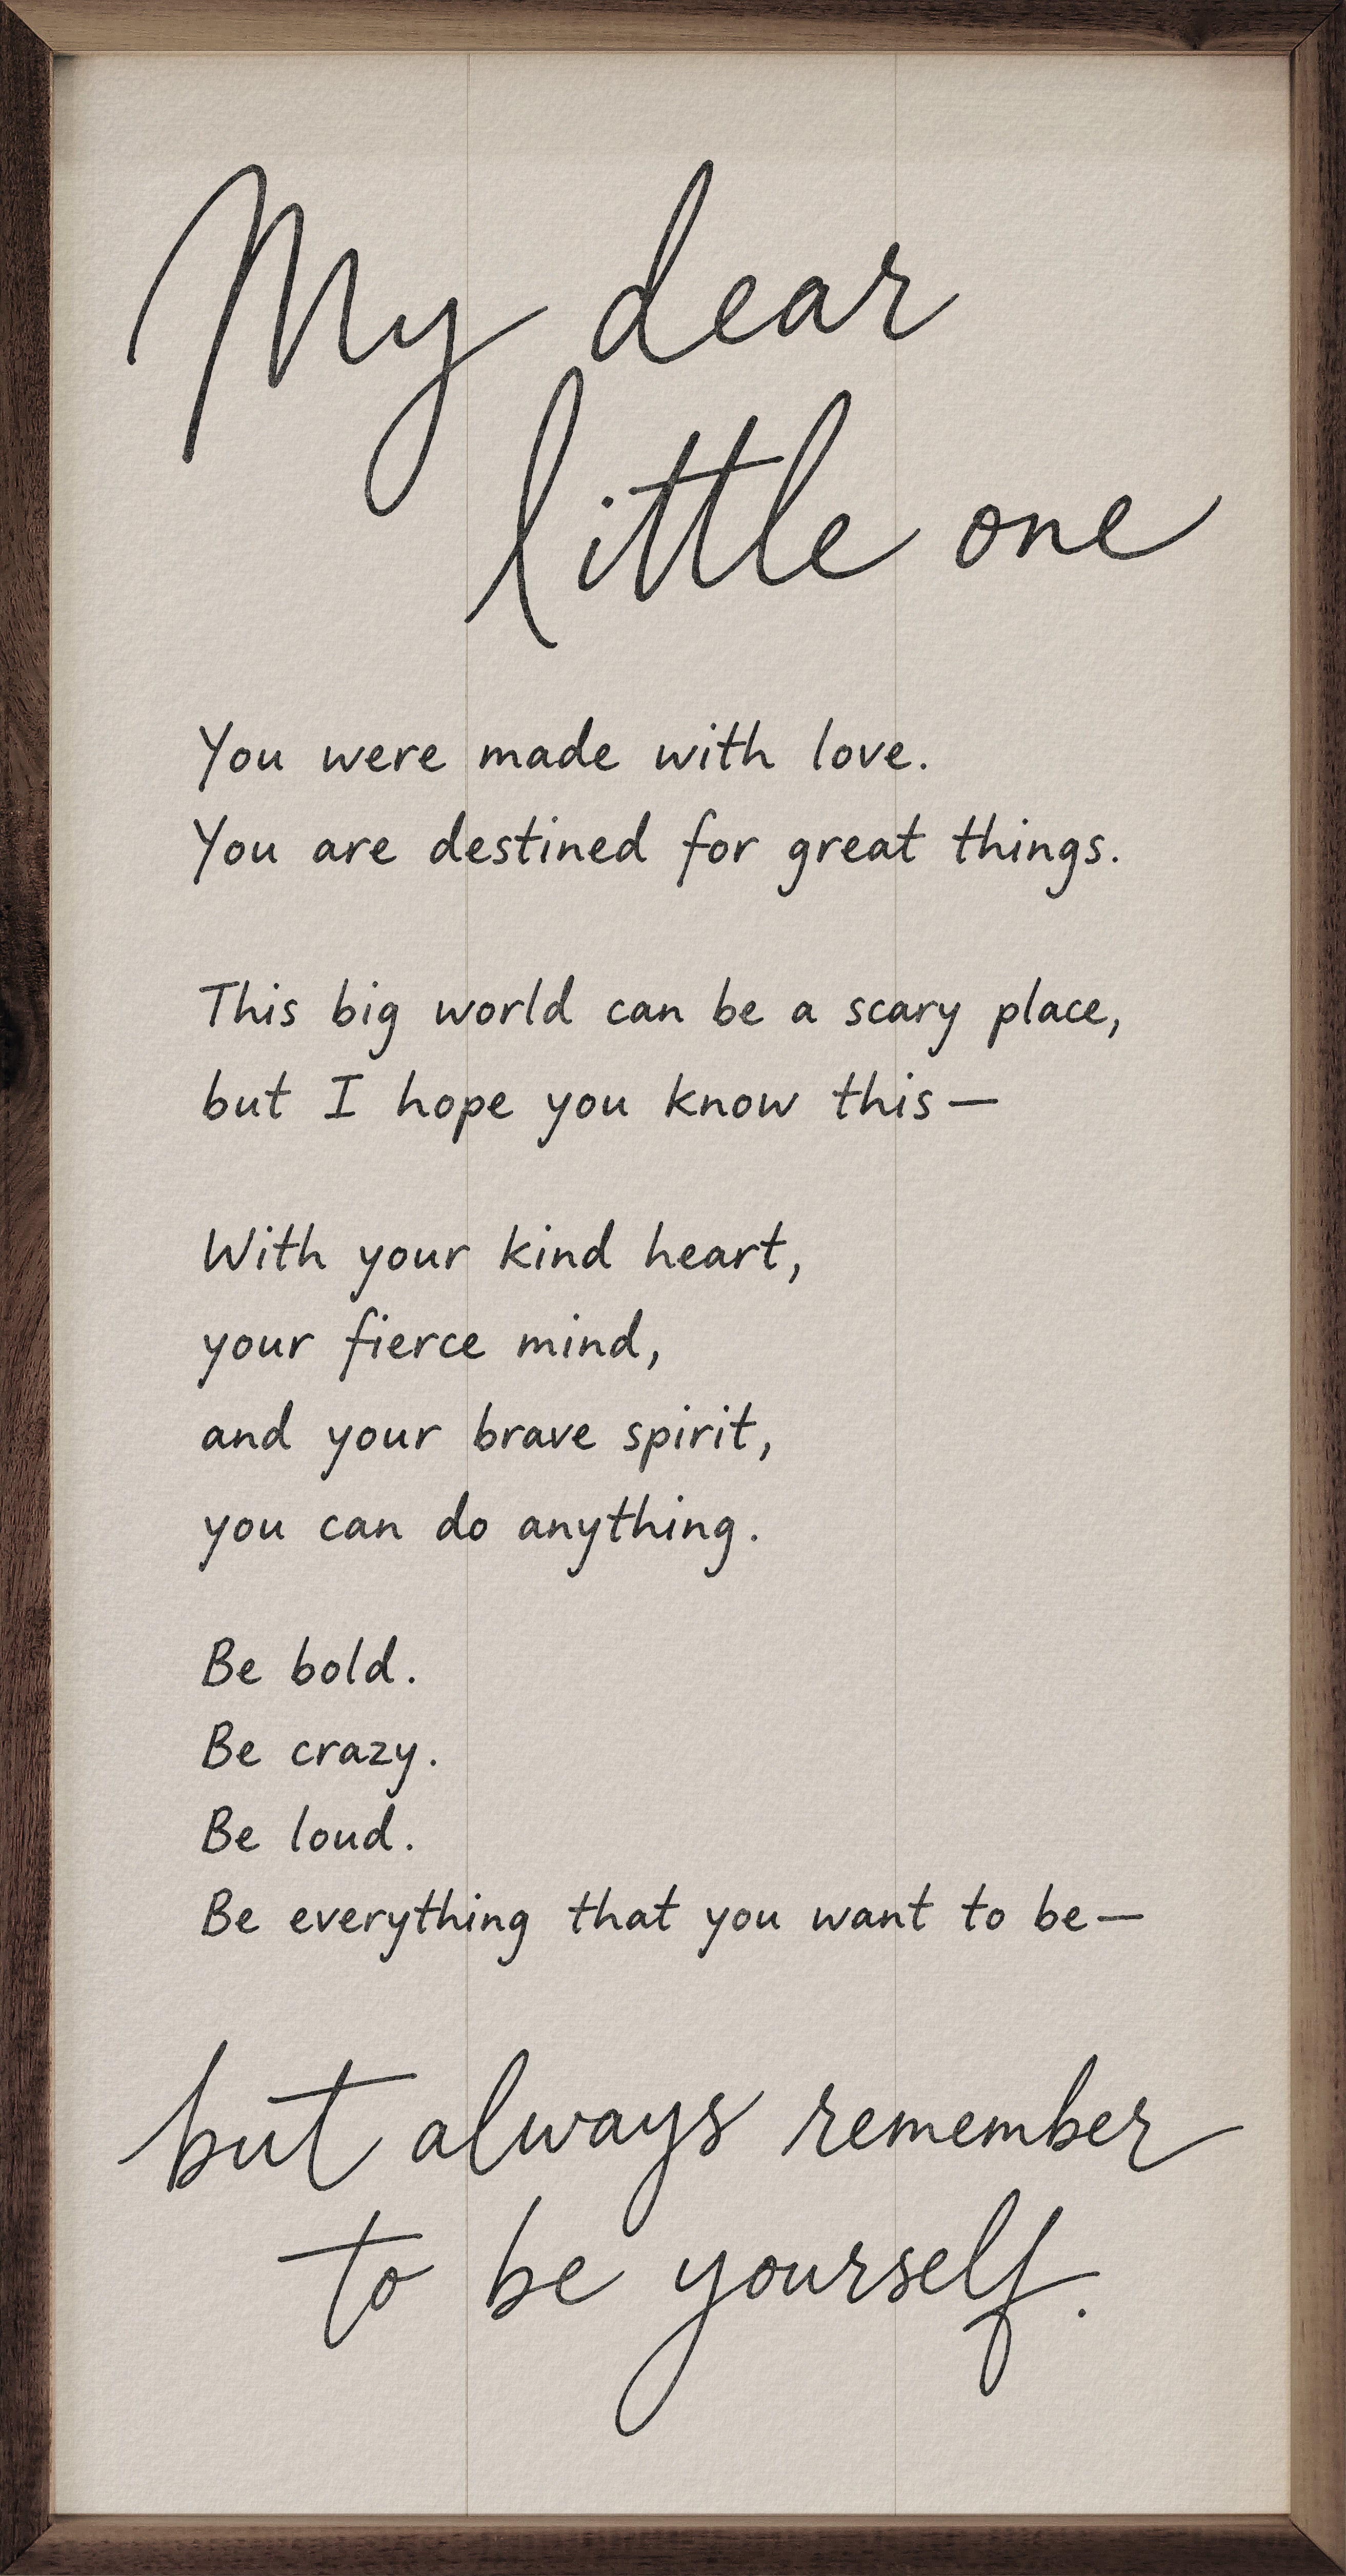 My dear
little one
You were made with love.
You are destined for great things.
This big world can be a scary place,
but I hope you know this—
With your kind heart,
your fierce mind,
and your brave spirit,
you can do anything.
Be bold.
Be crazy.
Be loud.
Be everything that you want to be—
but always remember
to be yourself.